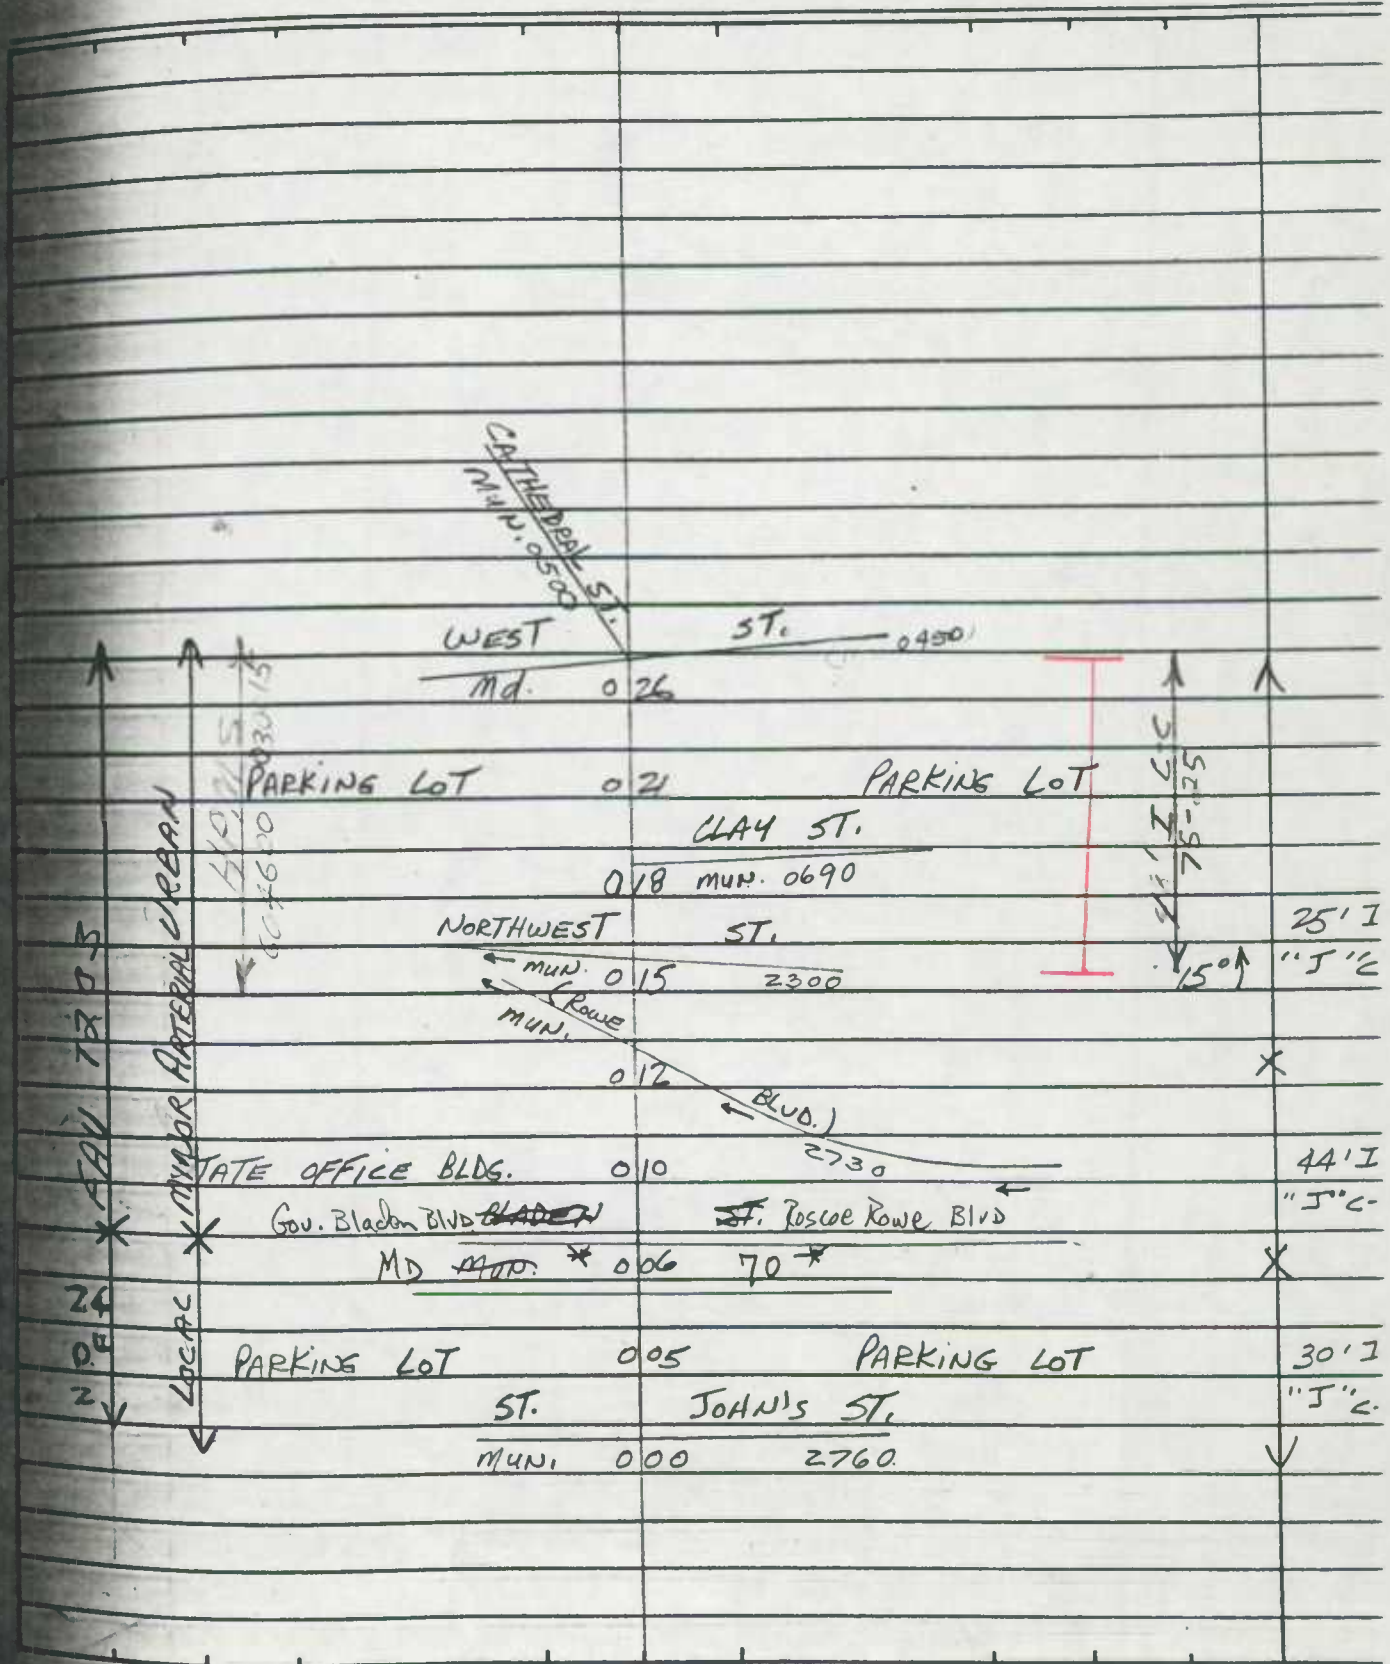 CATHEDRAL ST.
MUN. 0500
WEST ST. 0450
Md. 0 26
PARKING LOT 0 21 PARKING LOT
CLAY ST.
0 18 MUN. 0690
NORTHWEST ST.
MUN. 0 15 2300
(ROWE
MUN.
0 12
BLVD.)
2730
TATE OFFICE BLDG. 0 10
Gov. Bladen Blvd BLADEN ST. Roscoe Rowe Blvd
MD MUN. * 0 06 70 *
PARKING LOT 0 05 PARKING LOT
ST. JOHN'S ST.
MUN. 0 00 2760
FAU 7203
24
OF
2
MINOR ARTERIAL URBAN
LOCAL
I C-C
75-.25
15°
25' I
"J" C
44' I
"J" C-
30' I
"J" C.